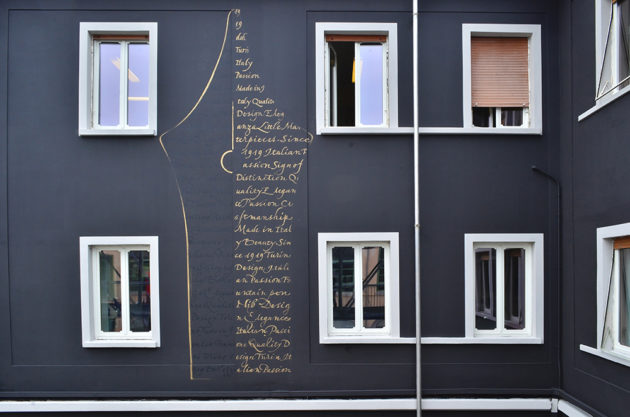 19
del
Turin
Italy
Passion
Made in I
taly Quality
Design Eleg
anza Little Ma
terpieces - Since
1919 Italian P
assion Sign of
Distinction Q
uality Elegan
ce Passion Cr
aftmanship
Made in Ital
y Beauty Sin
ce 1919 Turin
Design Itali
an Passion Fo
untain pen
Nib - Desig
n Elegance
Italian Passi
one Quality D
esign Turin It
alian Passion